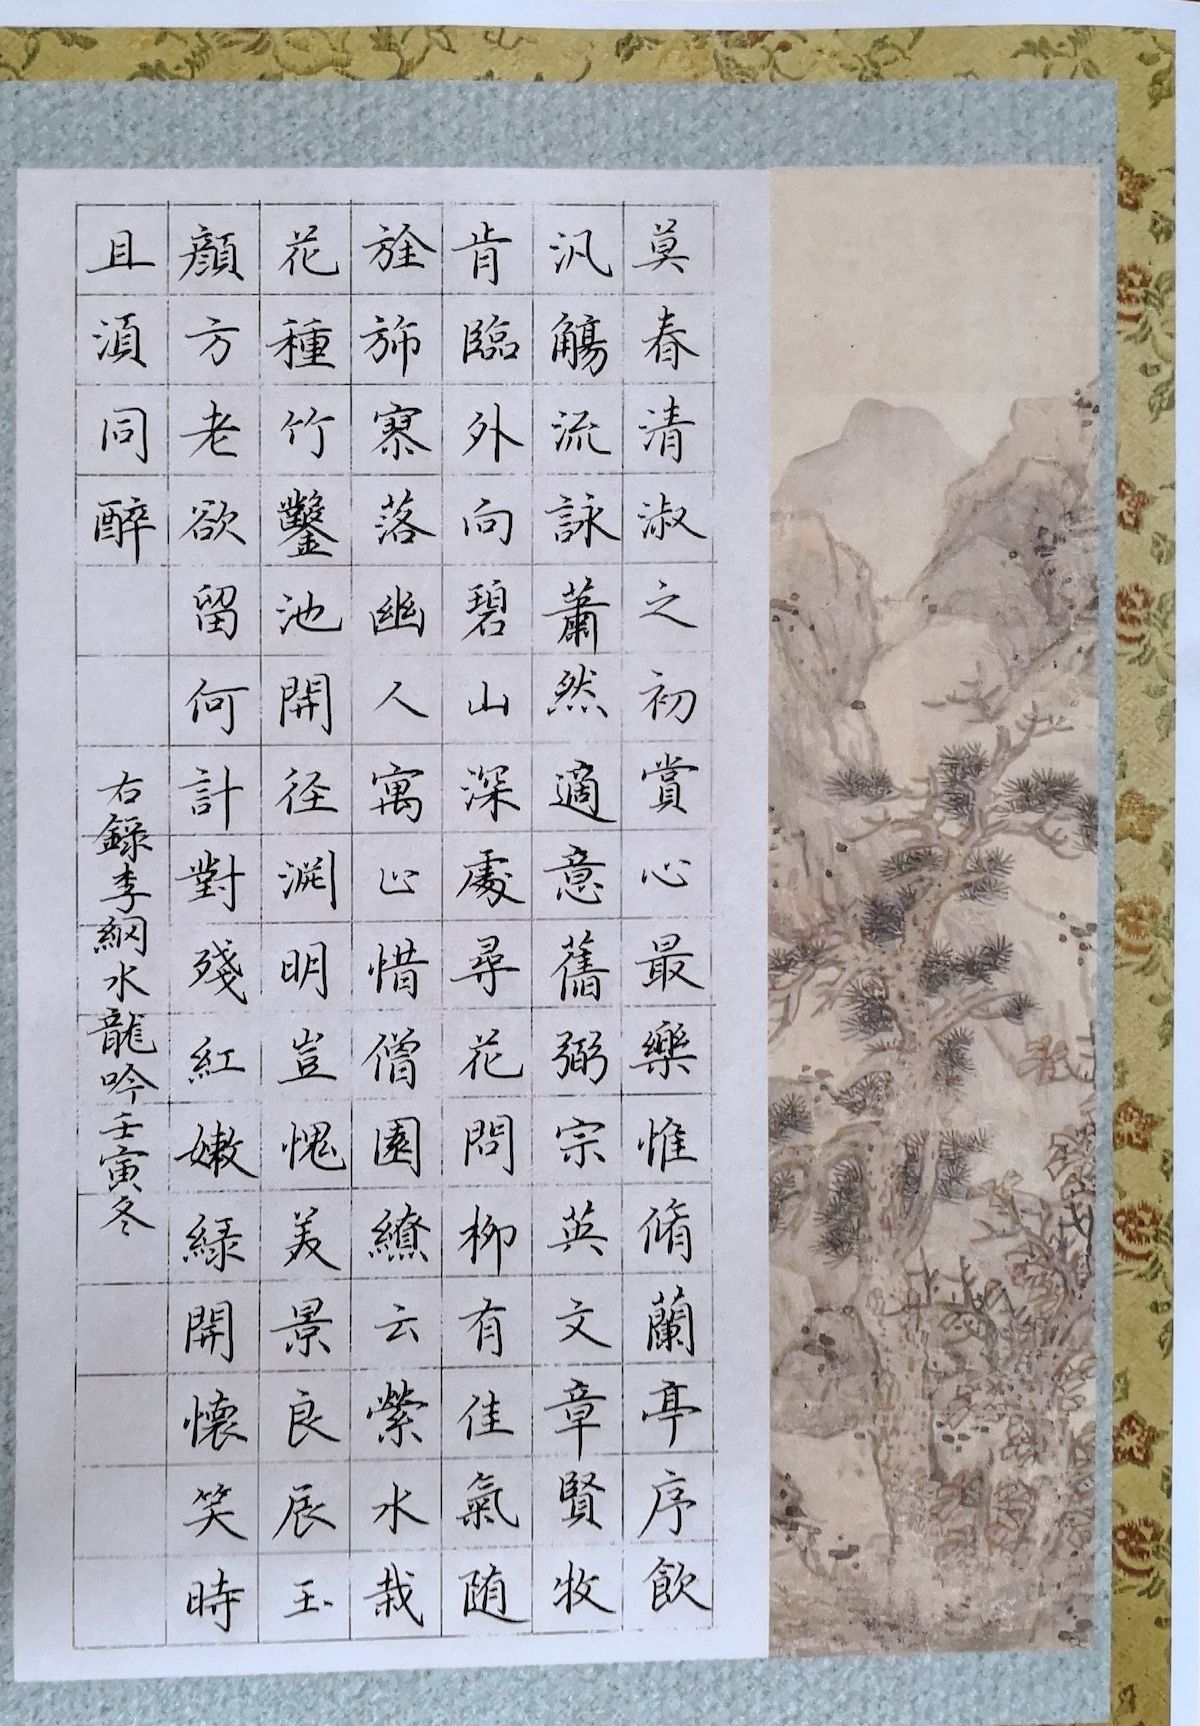 莫春清淑之初賞心最樂惟脩蘭亭序飲
汎觴流詠蕭然適意舊弼宗英文章賢牧
肯臨外向碧山深處尋花問柳有佳氣随
旌斾寮落幽人寓止惜僧園繚云縈水栽
花種竹鑿池開径渊明豈愧美景良辰玉
顔方老欲留何計對殘紅嫩緑開懷笑時
且湏同醉
右錄李綱水龍吟壬寅冬